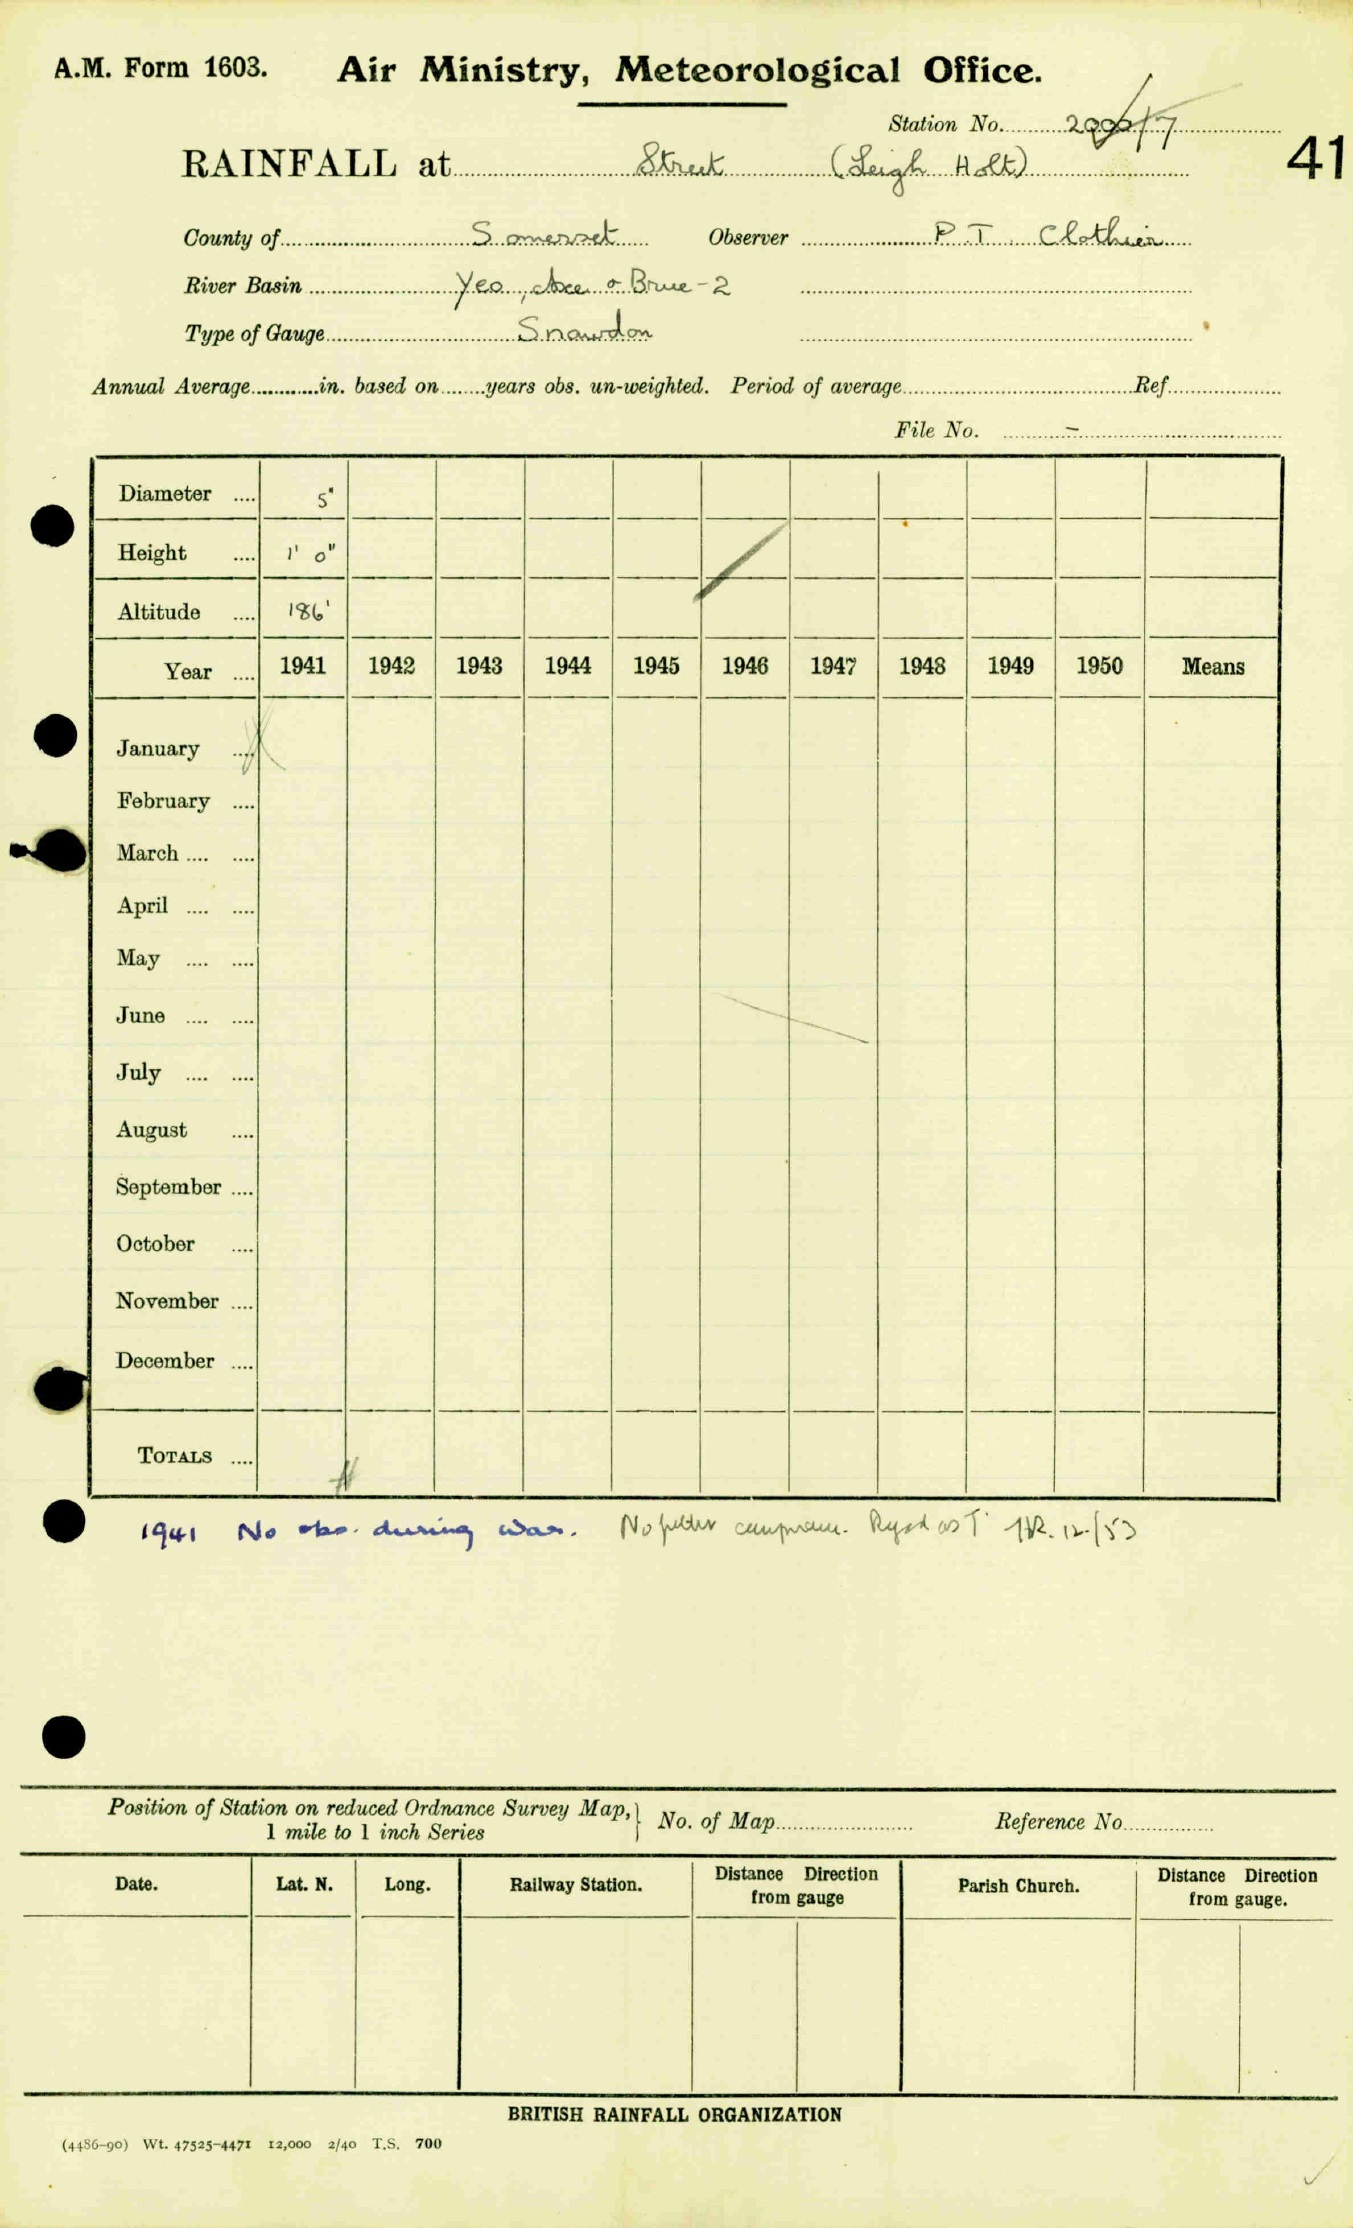 A.M. Form 1603. Air Ministry, Meteorological Office.
Station No. /7
41
RAINFALL at Street (Leigh Holt)
County of Somerset Observer P. T. Clothier
River Basin Yeo, Axe & Brue - 2
Type of Gauge Snowdon
Annual Average in. based on years obs. un-weighted. Period of average Ref.
File No. -
Diameter 5"
Height 1' 0"
Altitude 186'
Year 1941 1942 1943 1944 1945 1946 1947 1948 1949 1950 Means
January
February
March
April
May
June
July
August
September
October
November
December
TOTALS
1941 No obs. during war. No 12/53
Position of Station on reduced Ordnance Survey Map, } No. of Map Reference No.
1 mile to 1 inch Series
Date. Lat. N. Long. Railway Station. Distance Direction from gauge Parish Church. Distance Direction from gauge.
BRITISH RAINFALL ORGANIZATION
(4486-90) Wt. 47525-4471 12,000 2/40 T.S. 700